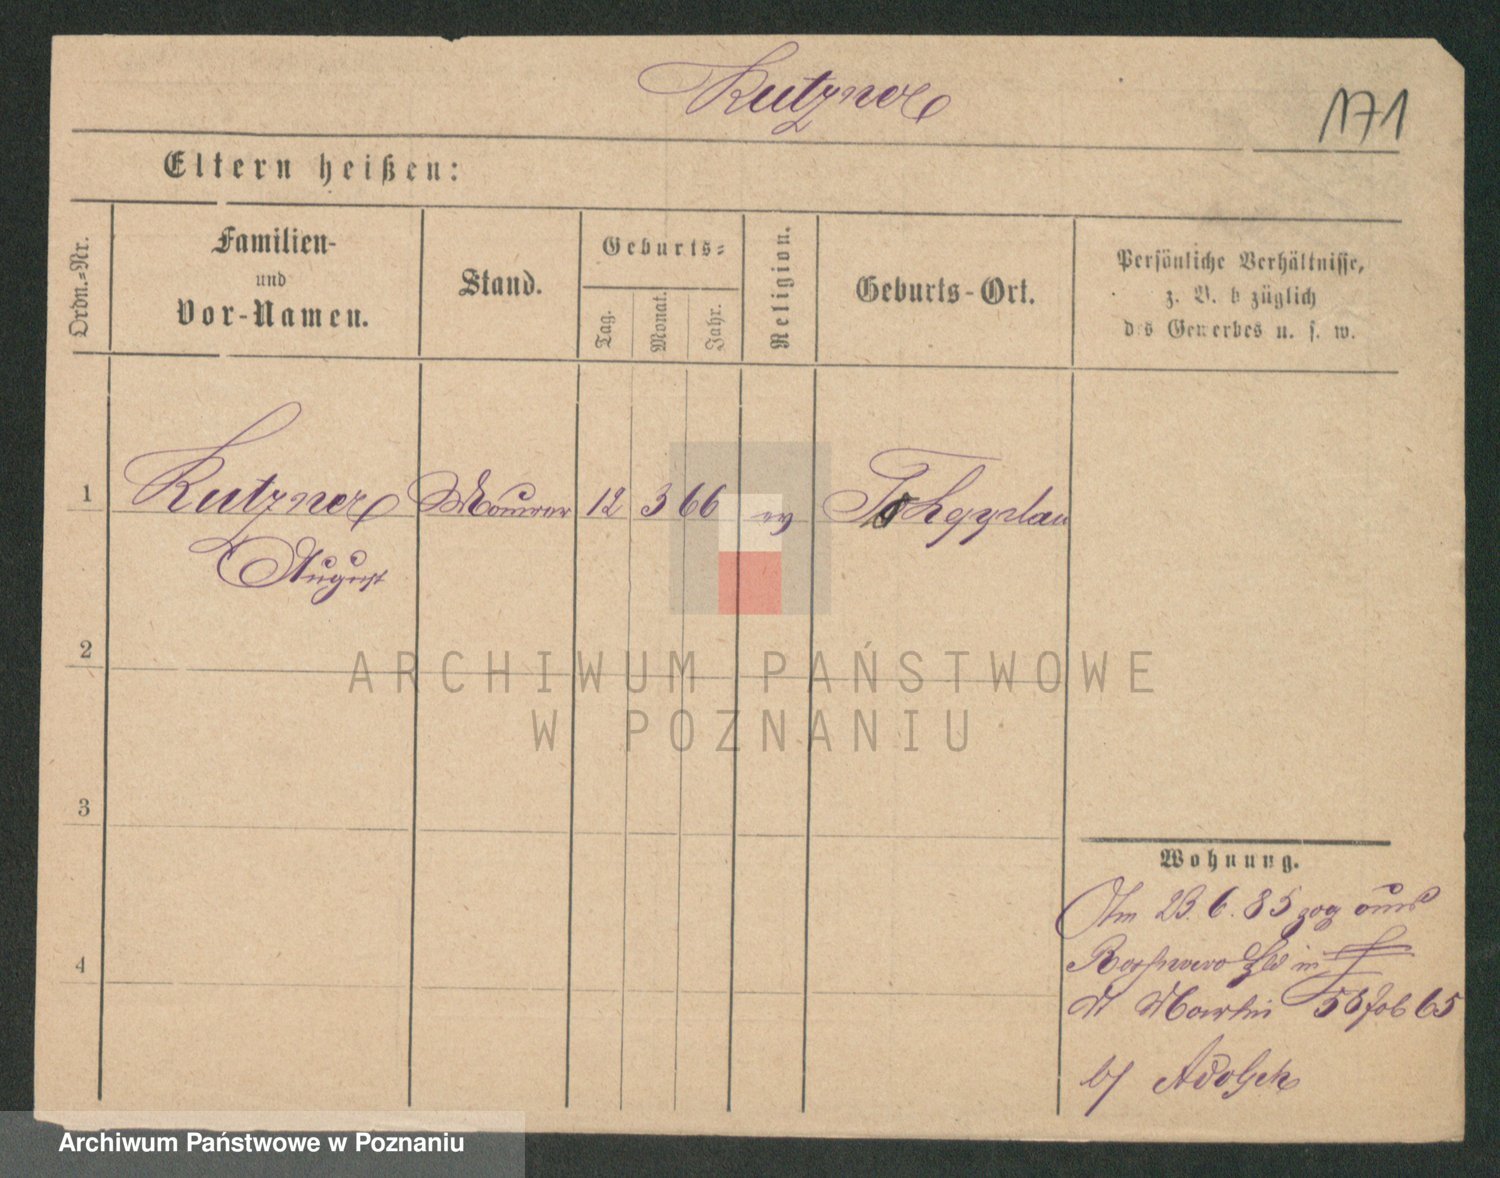 Kutzner
171
Eltern heißen:
Ordn.-Nr.
Familien-
und
Vor-Namen.
Stand.
Geburts-
Tag.
Monat.
Jahr.
Religion.
Geburts-Ort.
Persönliche Verhältnisse,
z. B. b züglich
des Gewerbes u. s. w.
1
Kutzner
Maurer
12
3
66
ev
August
2
3
4
Wohnung.
Am 23. 6. 85 zog aus
in
St Martin 58 Job 65
b/ Adolph
ARCHIWUM PAŃSTWOWE
W POZNANIU
Archiwum Państwowe w Poznaniu